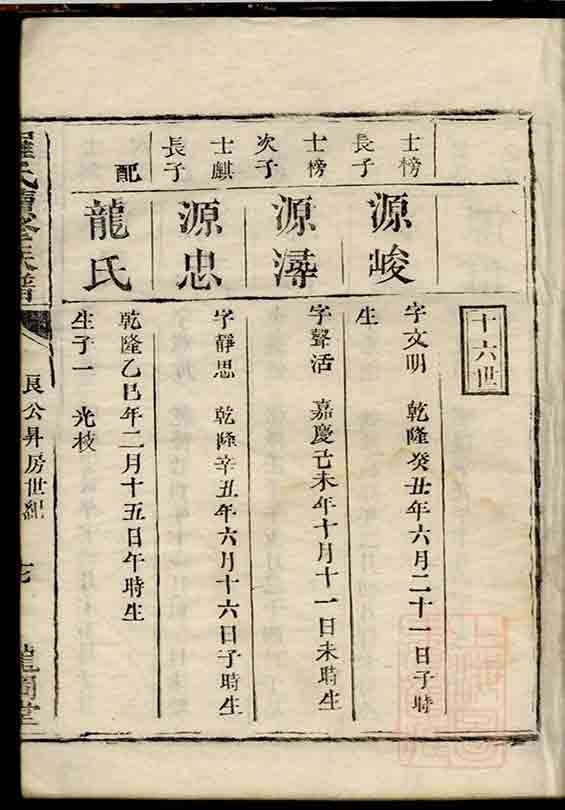 十六世
士榜
長子
源峻
字文明　乾隆癸丑年六月二十一日子時
生
士榜
次子
源潯
字聲活　嘉慶己未年十月十一日未時生
士麒
長子
源忠
字靜思　乾隆辛丑年六月十六日子時生
配
龍氏
乾隆乙巳年二月十五日午時生
生子一　光枝
氏續修族譜
良公昇房世紀